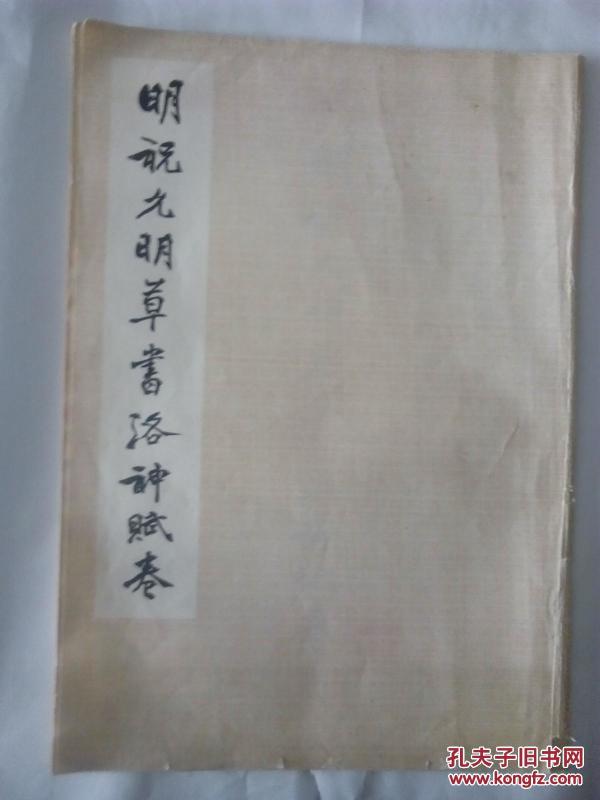 明祝允明草书洛神赋卷
孔夫子旧书网
www.kongfz.com